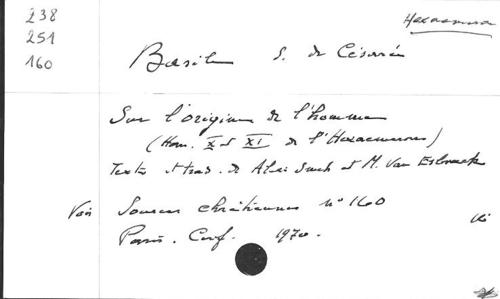 238
251
160
Hexaemeron
Basile S. de Césarée
Sur l'origine de l'homme
(Hom. X et XI de l'Hexaemeron)
Texte et trad. de Alexis Smets et M. Van Esbroeck
Voir Sources chrétiennes n° 160
Paris. Cerf. 1970.